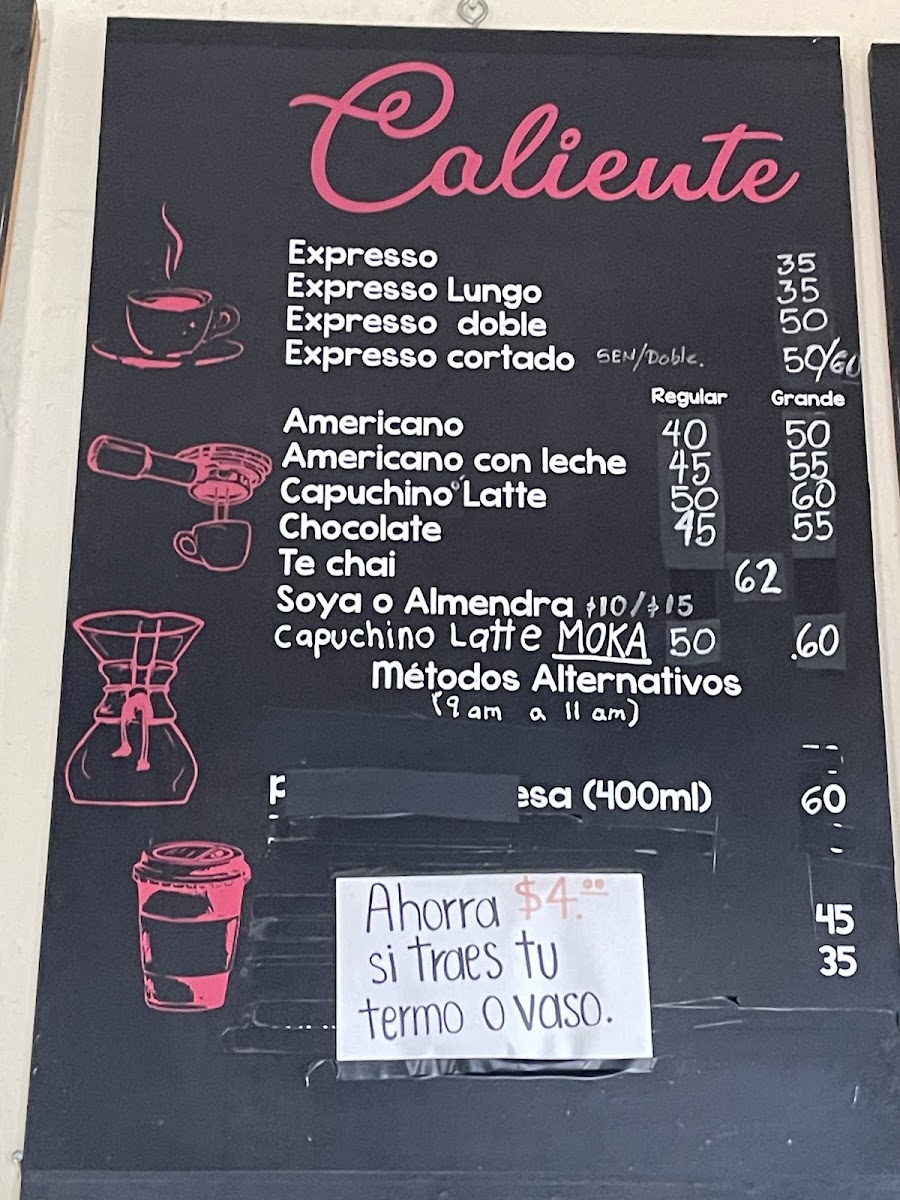 Caliente
Expresso 35
Expresso Lungo 35
Expresso doble 50
Expresso cortado SEN/Doble. 50/60
Regular Grande
Americano 40 50
Americano con leche 45 55
Capuchino o Latte 50 60
Chocolate 45 55
Te chai 62
Soya o Almendra $10/$15
Capuchino Latte MOKA 50 .60
Métodos Alternativos
(9 am a 11 am)
esa (400ml) 60
Ahorra $4.00
si traes tu
termo o vaso.
45
35